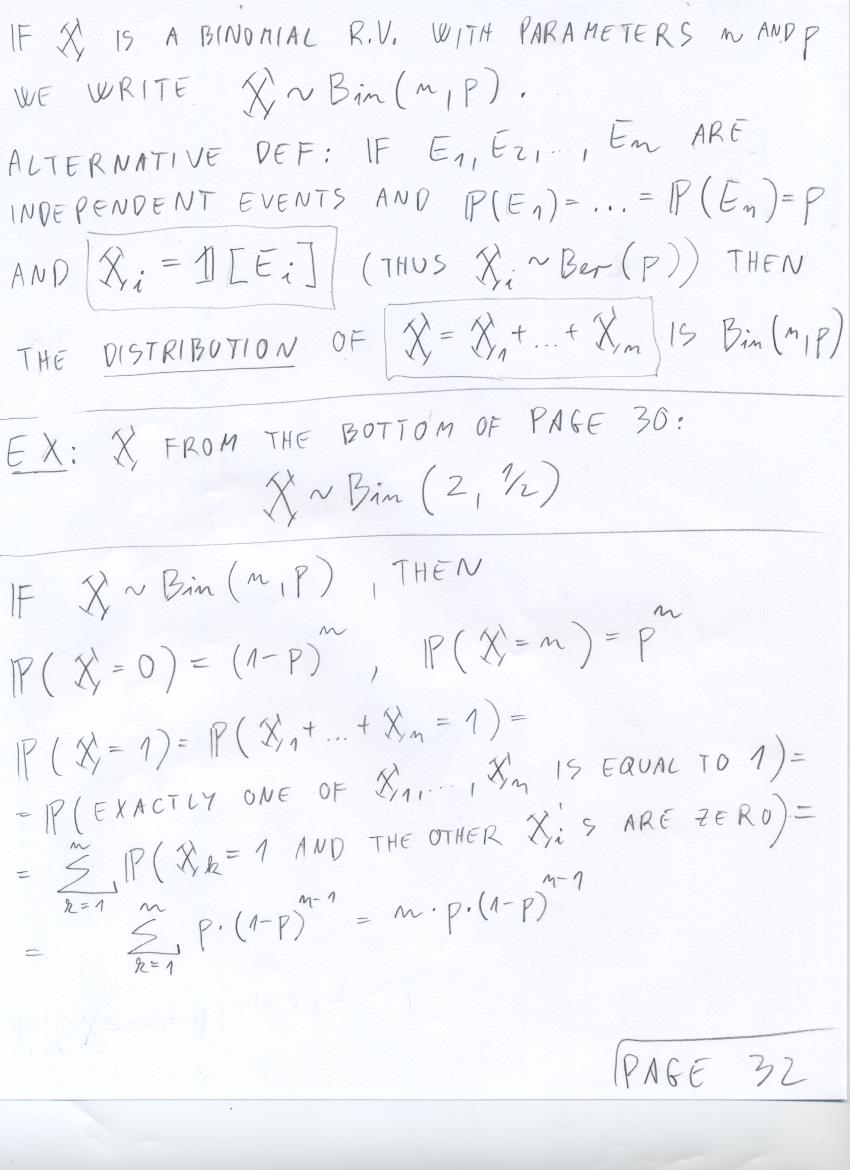 IF X IS A BINOMIAL R.V. WITH PARAMETERS n AND p
WE WRITE X ~ Bin(n, p).
ALTERNATIVE DEF: IF E1, E2, ..., En ARE
INDEPENDENT EVENTS AND ℙ(E1)= ... = ℙ(En)=p
AND Xi = 𝟙[Ei] (THUS Xi ~ Ber(p)) THEN
THE DISTRIBUTION OF X = X1 + ... + Xn IS Bin(n, p)
EX: X FROM THE BOTTOM OF PAGE 30:
X ~ Bin(2, 1/2)
IF X ~ Bin(n, p), THEN
ℙ(X=0) = (1-p)^n, ℙ(X=n) = p^n
ℙ(X=1) = ℙ(X1 + ... + Xn = 1) =
= ℙ(EXACTLY ONE OF X1, ..., Xn IS EQUAL TO 1) =
= ∑_{k=1}^{n} ℙ(Xk = 1 AND THE OTHER Xi's ARE ZERO) =
= ∑_{k=1}^{n} p·(1-p)^{n-1} = n·p·(1-p)^{n-1}
PAGE 32